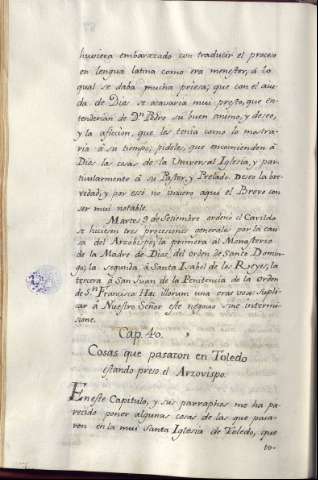 huviera embarazado con traducir el proceso
en lengua latina como era menester, á lo
qual se daba mucha priesa; que con el aiu-
da de Dios se acavaria mui presto, que en-
tenderian de Dn. Pedro su buen animo, y deseo,
y la aficion, que les tenia como lo mostra-
ria á su tiempo; pideles, que encomienden á
Dios las cosas de la Universal Iglesia, y par-
ticularmente á su Pastor, y Prelado. Deseo la bre-
vedad, y por eso no inxiero aqui el Breve con
ser mui notable.
Martes 9 de Setiembre ordenó el Cavildo
se hiciesen tres procesiones generales por la cau-
sa del Arzobispo; la primera al Monasterio
de la Madre de Dios, del orden de Santo Domin-
go; la segunda á Santa Isabel de los Reyes; la
tercera á San Juan de la Penitencia de la Orden
de Sn. Francisco
á Nuestro Señor
Cap. 40.
Cosas que pasaron en Toledo
estando preso el Arzovispo.
En este Capitulo, y sus parraphos me ha pa-
recido poner algunas cosas de las que pasa-
ron en la mui Santa Iglesia de Toledo, que
to-